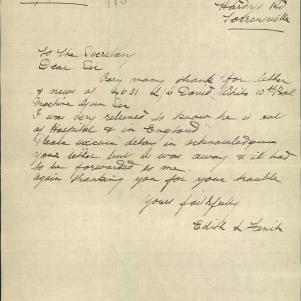 Hardys Rd
Torrensville
To The Secretary
Dear Sir
Very many thanks for letter
& news of 4031 L/S David White 10th Batt
Machine Gun Sec
I was very relieved to know he is out
of Hospital & in England
Please excuse delay in acknowledging
your letter but I was away & it had
to be forwarded to me.
again thanking you for your trouble
Yours faithfully
Edith L